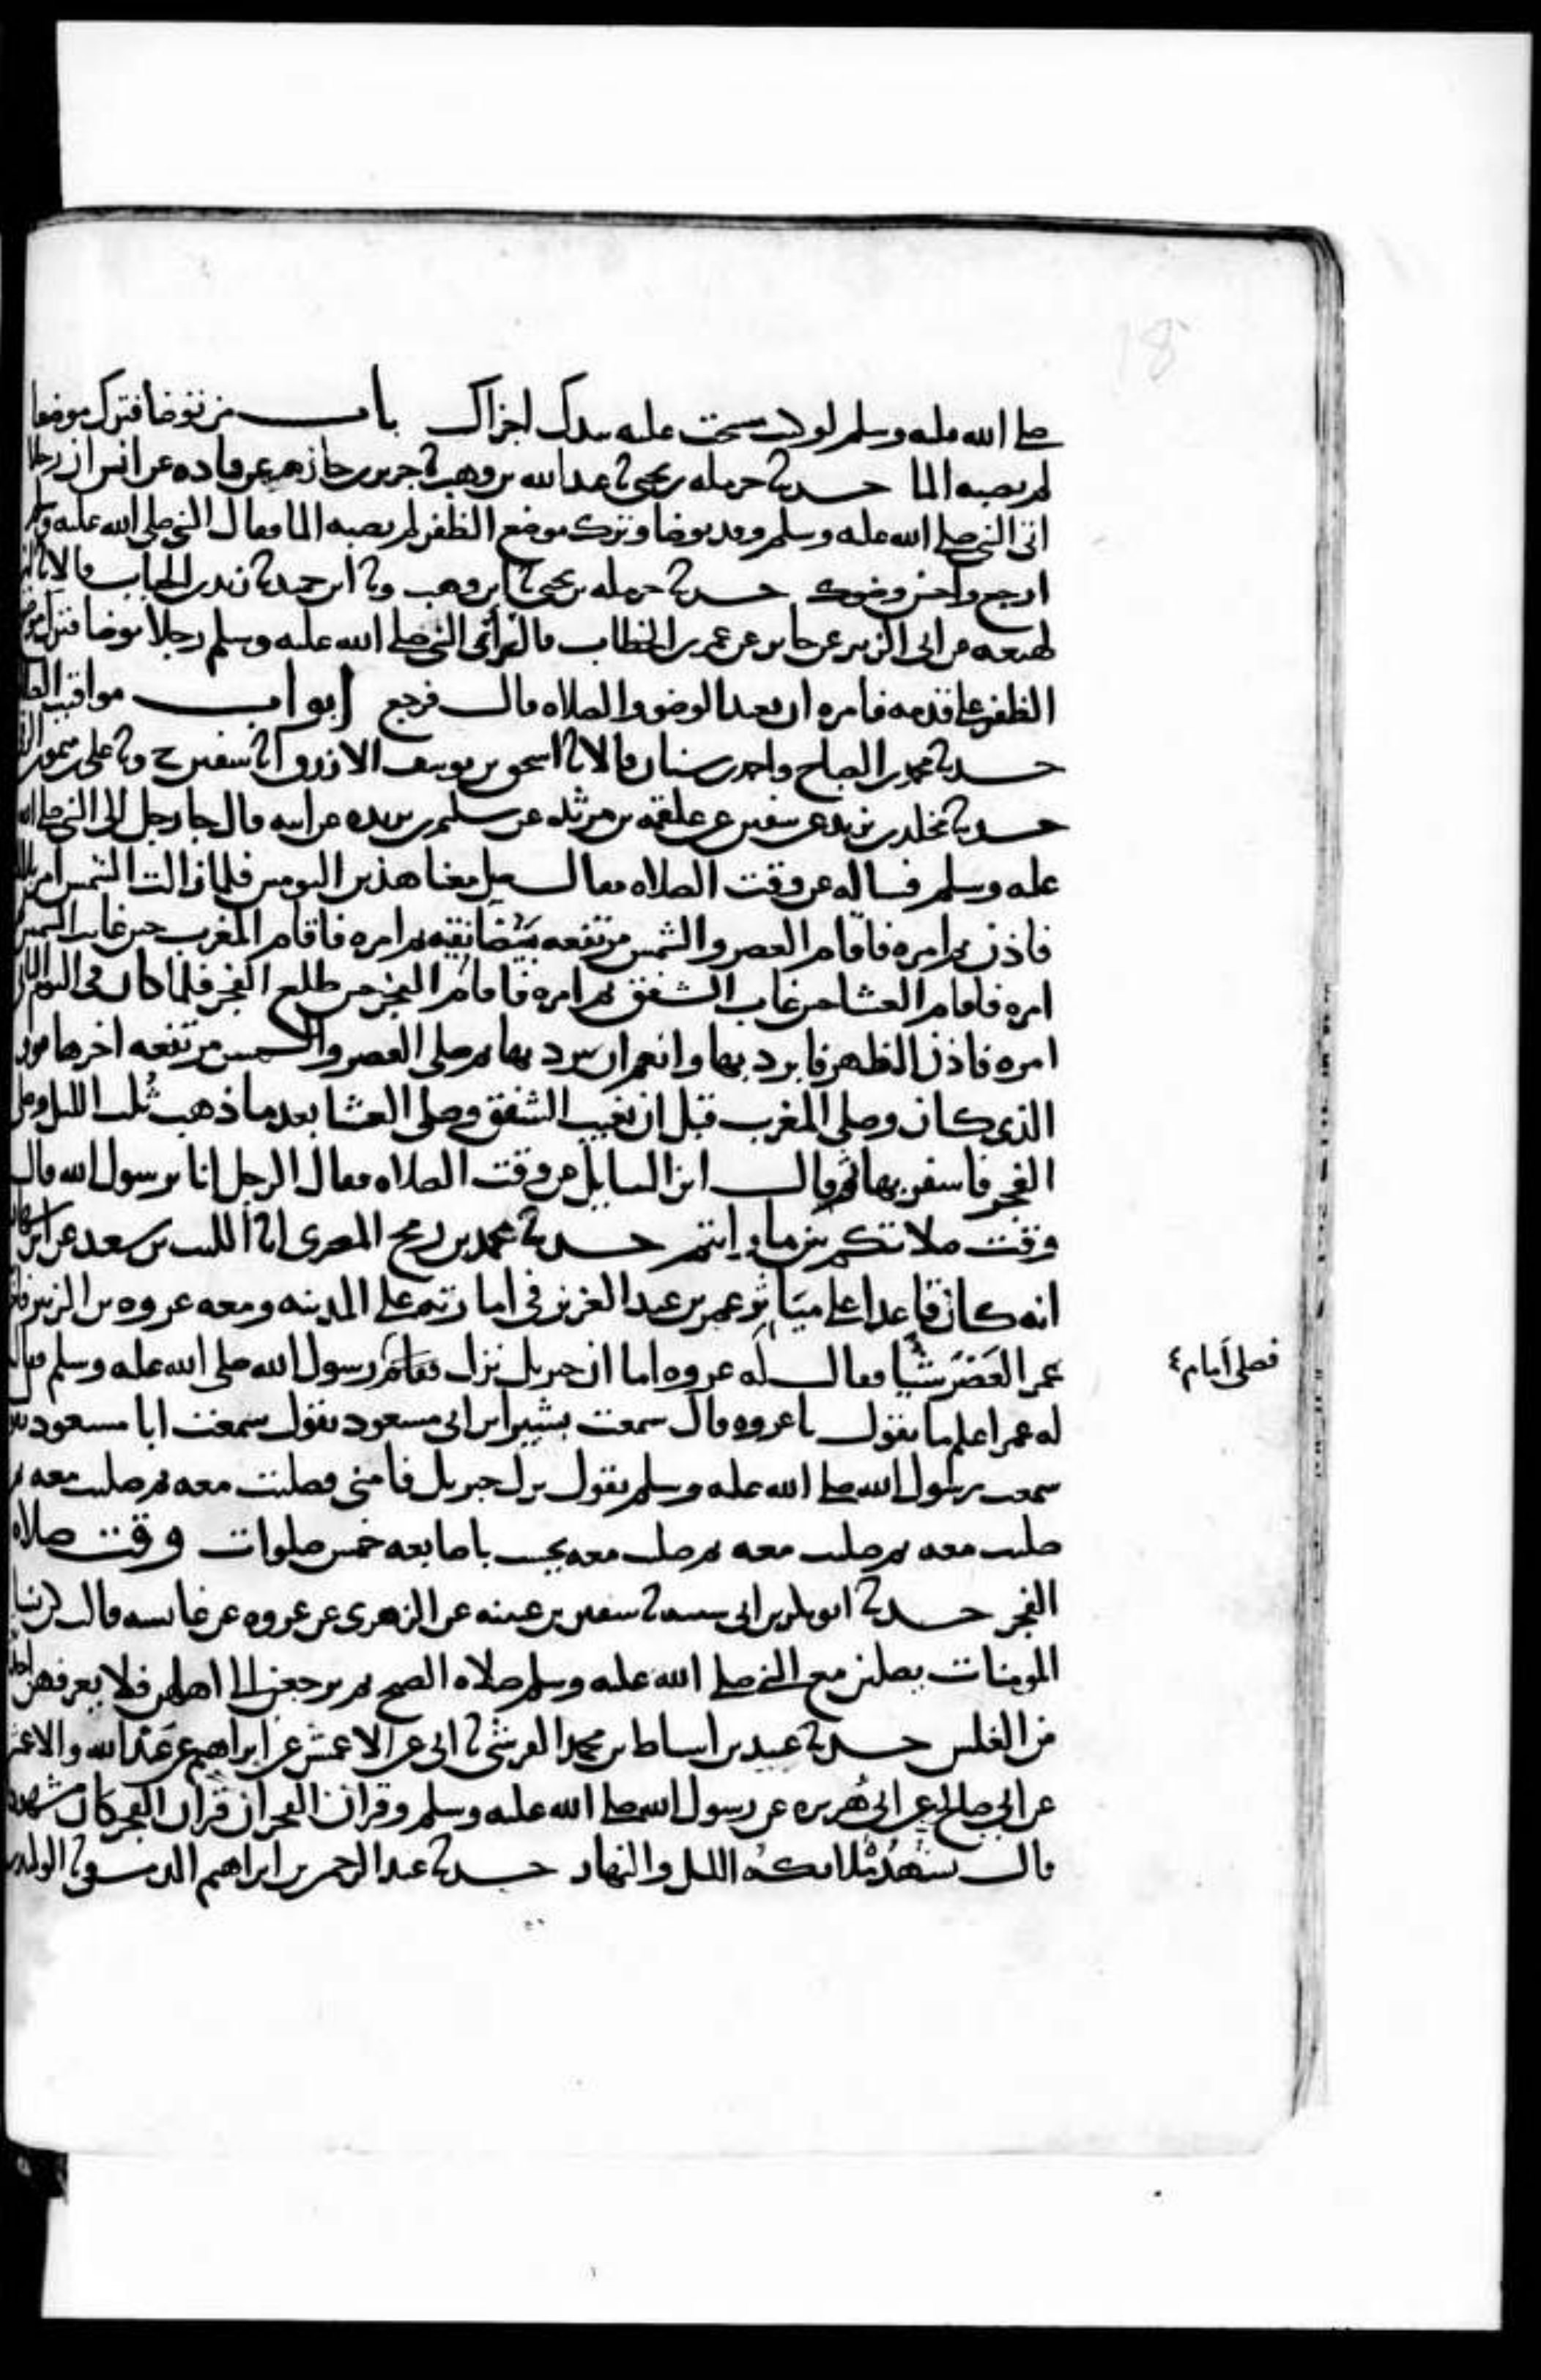 صلى الله عليه وسلم لو كنت مسحت عليه بيدك اجزاك باب من توضا فترك موضعا
لم يصبه الما حدثنا حرمله بن يحيى نا عبد الله بن وهب نا جرير بن حازم عن قتاده عن انس ان رجلا
اتى النبي صلى الله عليه وسلم وقد توضا وترك موضع الظفر لم يصبه الما فقال النبي صلى الله عليه وسلم
ارجع واحسن وضوك حدثنا حرمله بن يحيى نا ابن وهب ونا ابن حميد نا زيد بن الحباب قالا نا ابن
لهيعه عن ابي الزبير عن جابر عن عمر بن الخطاب قال راى النبي صلى الله عليه وسلم رجلا توضا فترك موضع
الظفر على قدمه فامره ان يعيد الوضو والصلاه قال فرجع ابواب مواقيت الصلاه
حدثنا محمد بن الصباح واحمد بن سنان قالا نا اسحق بن يوسف الازرق انا سفين ح ونا على بن ميمون الرقي
حدثنا مخلد بن يزيد عن سفين عن علقمه بن مرثد عن سليمن بن بريده عن ابيه قال جا رجل الى النبي صلى الله
عليه وسلم فساله عن وقت الصلاه فقال صل معنا هذين اليومين فلما زالت الشمس امر بلالا
فاذن ثم امره فاقام العصر والشمس مرتفعه بيضا نقيه ثم امره فاقام المغرب حين غابت الشمس
امره فاقام العشا حين غاب الشفق ثم امره فاقام الفجر حين طلع الفجر فلما كان في اليوم الثاني
امره فاذن الظهر فابرد بها وانعم ان يبرد بها ثم صلى العصر والشمس مرتفعه اخرها فوق
الذي كان وصلى المغرب قبل ان يغيب الشفق وصلى العشا بعد ما ذهب ثلث الليل وصلى
الفجر فاسفر بها ثم قال اين السايل عن وقت الصلاه فقال الرجل انا يرسول الله قال
وقت صلاتكم بين ما رايتم حدثنا محمد بن رمح المصري انا الليث بن سعد عن ابن شهاب
انه كان قاعدا على مياثر عمر بن عبد العزيز في امارته على المدينه ومعه عروه بن الزبير فاخر
عمر العصر شيا فقال له عروه اما ان جبريل نزل فقام رسول الله صلى الله عليه وسلم فقال
فصلى امام
له عمر اعلم ما تقول يا عروه قال سمعت بشير ابن ابي مسعود يقول سمعت ابا مسعود يقول
سمعت رسول الله صلى الله عليه وسلم يقول نزل جبريل فامني فصليت معه ثم صليت معه ثم
صليت معه ثم صليت معه ثم صليت معه يحسب باصابعه خمس صلوات وقت صلاه
الفجر حدثنا ابو بكر بن ابي شيبه نا سفين بن عيينه عن الزهري عن عروه عن عايشه قالت كن نسا
المومنات يصلين مع النبي صلى الله عليه وسلم صلاه الصبح ثم يرجعن الى اهلهن فلا يعرفهن احد
من الغلس حدثنا عبيد بن اسباط بن محمد القرشي نا ابي عن الاعمش عن ابراهيم عن عبد الله والاعمش
عن ابي صالح عن ابي هريره عن رسول الله صلى الله عليه وسلم وقران الفجر ان قران الفجر كان مشهودا
قال تشهده ملايكه الليل والنهار حدثنا عبد الرحمن بن ابراهيم الدمشقي نا الوليد بن